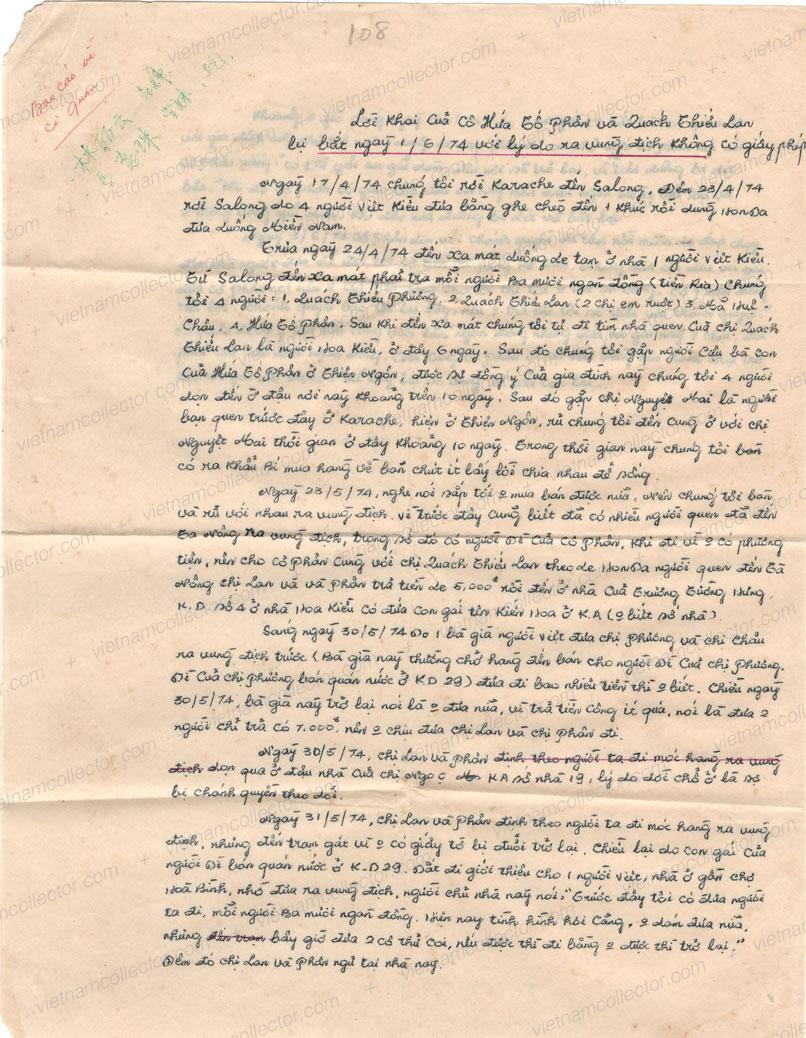 108
Báo cáo về
cô Quách
Lời Khai Cuả Cô Hứa Tố Phấn và Quách Thiếu Lan
bị bắt ngày 1/6/74 với lý do ra vùng địch không có giấy phép
Ngày 17/4/74 chúng tôi rời Karache đến Salong. Đêm 23/4/74
rời Salong do 4 người việt Kiều đưa bằng ghe chèo đến 1 khúc rồi dùng Honda
đưa đường Miền Nam.
Trưa ngày 24/4/74 đến Xa mát đường de tạm ở nhà 1 người việt Kiều.
Từ Salong đến Xa mát phải trả mỗi người Ba mươi ngàn đồng (tiền Ria) Chúng
tôi 4 người: 1. Quách Thiếu Phương. 2 Quách Thiếu Lan (2 chị em ruột) 3. Mã Huê
Châu. 4. Hứa Tố Phấn. Sau khi đến Xa mát chúng tôi tự đi tìm nhà quen Cuả chị Quách
Thiếu Lan là người Hoa Kiều, ở đây 6 ngày. Sau đó chúng tôi gặp người Cậu bà con
Cuả Hứa Tố Phấn ở Thiện Ngôn, được sự đồng ý Cuả gia đình này chúng tôi 4 người
dọn đến ở đậu nơi này khoảng trên 10 ngày. Sau đó gặp chị Nguyệt Mai là người
bạn quen trước đây ở Karache, hiện ở Thiện Ngôn, rủ chúng tôi đến Cùng ở với chị
Nguyệt Mai thời gian ở đây khoảng 10 ngày. Trong thời gian này chúng tôi bàn
có ra Khẩu Bí mua hàng về bán chút ít lấy lời chia nhau để sống.
Ngày 23/5/74, nghe nói sắp tới o mua bán được nữa. Nên chúng tôi bàn
và rủ với nhau ra vùng địch. Vì trước đây Cũng biết đã có nhiều người quen đã đến
Ta Nông ra vùng địch, trong số đó có người Dì Cuả cô Phấn. Khi đi vì o có phương
tiện, nên cho cô Phấn Cùng với chị Quách Thiếu Lan theo de Honda người quen đến Tà
Nông chị Lan và và Phấn trả tiền de 5,000đ rồi đến ở nhà Cuả Trương Tường Hưng
K.D. Số 4 ở nhà Hoa Kiều Có đứa Con gái tên Kiến Hoa ở K.A (o biết số nhà).
Sáng ngày 30/5/74 Do 1 bà già người việt đưa chị Phương và chị Châu
ra vùng địch trước (Bà già này thường chở hàng đến bán cho người Dì Cuả chị Phương.
Dì Cuả chị Phương bán quán nước ở KD 29) đưa đi bao nhiêu tiền thì o biết. Chiều ngày
30/5/74, bà già này trở lại nói là o đưa nữa, vì trả tiền Công ít quá, nói là đưa 2
người chỉ trả có 7.000đ nên o chịu đưa chị Lan và chị Phấn đi.
Ngày 30/5/74, chị Lan và Phấn định theo người ta đi móc hàng ra vùng
địch dọn qua ở đậu nhà Cuả chị Ngọc ở KA số nhà 19, lý do dời chỗ ở là sợ
bị chánh quyền theo dõi.
Ngày 31/5/74, chị Lan và Phấn định theo người ta đi móc hàng ra vùng
địch, nhưng đến trạm gát vì o có giấy tờ bị đuổi trở lại. Chiều lại do con gái Cuả
người Dì bán quán nước ở K.D 29. Dắt đi giới thiệu cho 1 người việt, nhà ở gần chợ
Hoà Bình, nhờ đưa ra vùng địch, người chủ nhà này nói: "Trước đây tôi có đưa người
ta đi, mỗi người Ba mươi ngàn đồng. Hiện nay tình hình hơi Căng. o dám đưa nữa,
nhưng đến trạm bây giờ đưa 2 cô thử Coi, nếu được thì đi bằng o được thì trở lại."
Đêm đó chị Lan và Phấn ngủ tại nhà này.